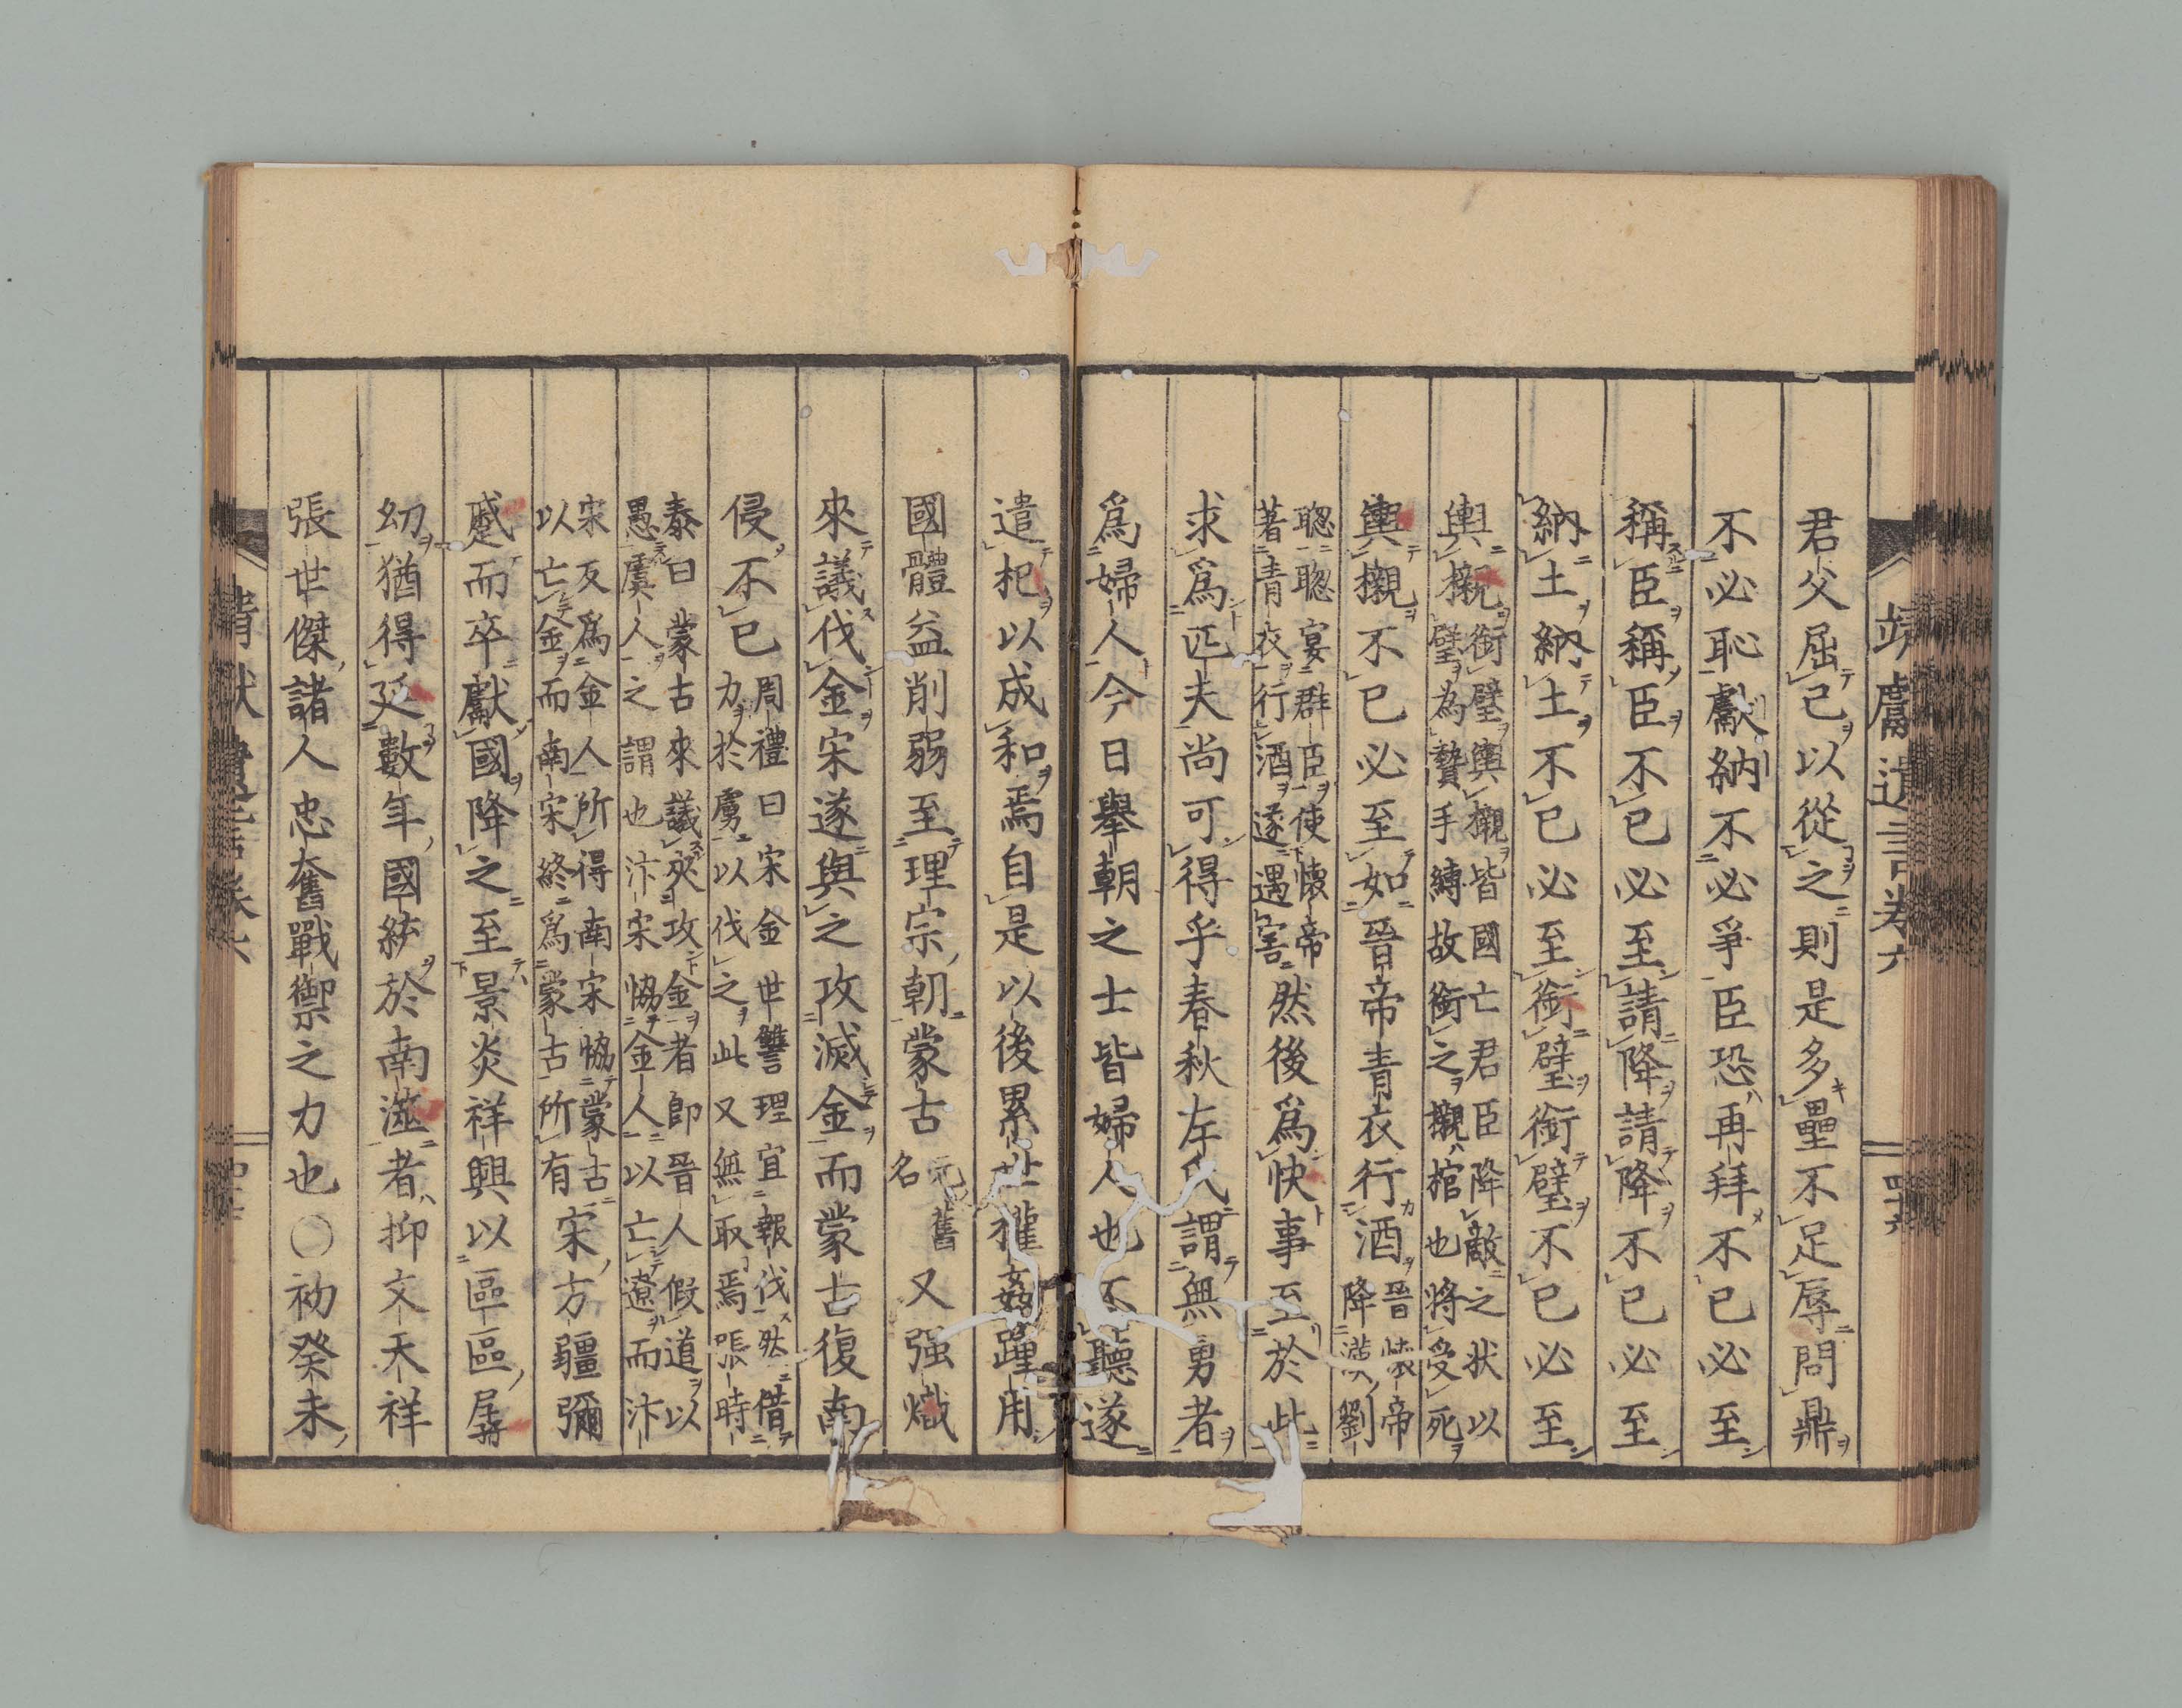 靖獻遺言卷六
君父屈己以從之則是多壘不足辱問鼎
不必恥獻納不必爭臣恐再拜不已必至
稱臣稱臣不已必至請降請降不已必至
納土納土不已必至銜璧銜璧不已必至
輿櫬銜璧輿櫬皆國亡君臣降敵之狀以
璧為贄手縛故銜之櫬棺也將受死
輿櫬不已必至如晉帝青衣行酒晉懷帝
降漢劉
聰聰宴群臣使懷帝
著青衣行酒遂遇害然後爲快事至於此
求爲匹夫尚可得乎春秋左氏謂無勇者
爲婦人今日舉朝之士皆婦人也不聽遂
遣杞以成和焉自是以後累世權姦踵用
國體益削弱至理宗朝蒙古元舊
名又强熾
來議伐金宋遂與之攻滅金而蒙古復南
侵不已周禮曰宋金世讐理宜報伐然借
力於虜以伐之此又無取焉張時
泰曰蒙古來議夾攻金者即晉人假道以
愚虞人之謂也汴宋恊金人以亡遼而汴
宋反爲金人所得南宋恊蒙古
以亡金而南宋終爲蒙古所有宋方疆彌
蹙而卒獻國降之至景炎祥興以區區孱
幼猶得延數年國統於南澨者抑文天祥
張世傑諸人忠奮戰禦之力也○初癸未